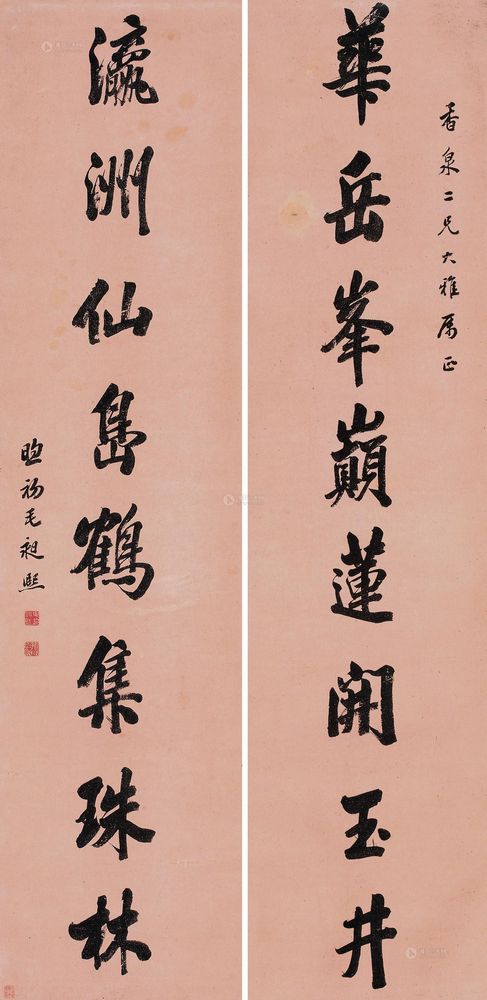 香泉二兄大雅属正
華岳峯巔蓮開玉井
瀛洲仙島鶴集珠林
煦初毛昶熙